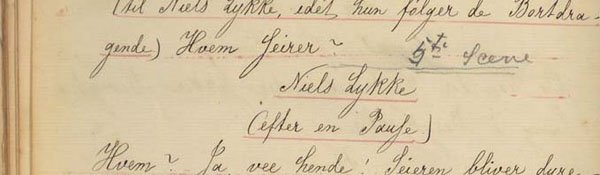 (til Niels Lykke, idet hun følger de Bortdra-
gende) Hvem seirer? 5te Scene
Niels Lykke
(efter en Pause)
Hvem? Ja, vee hende! Seieren bliver dyre